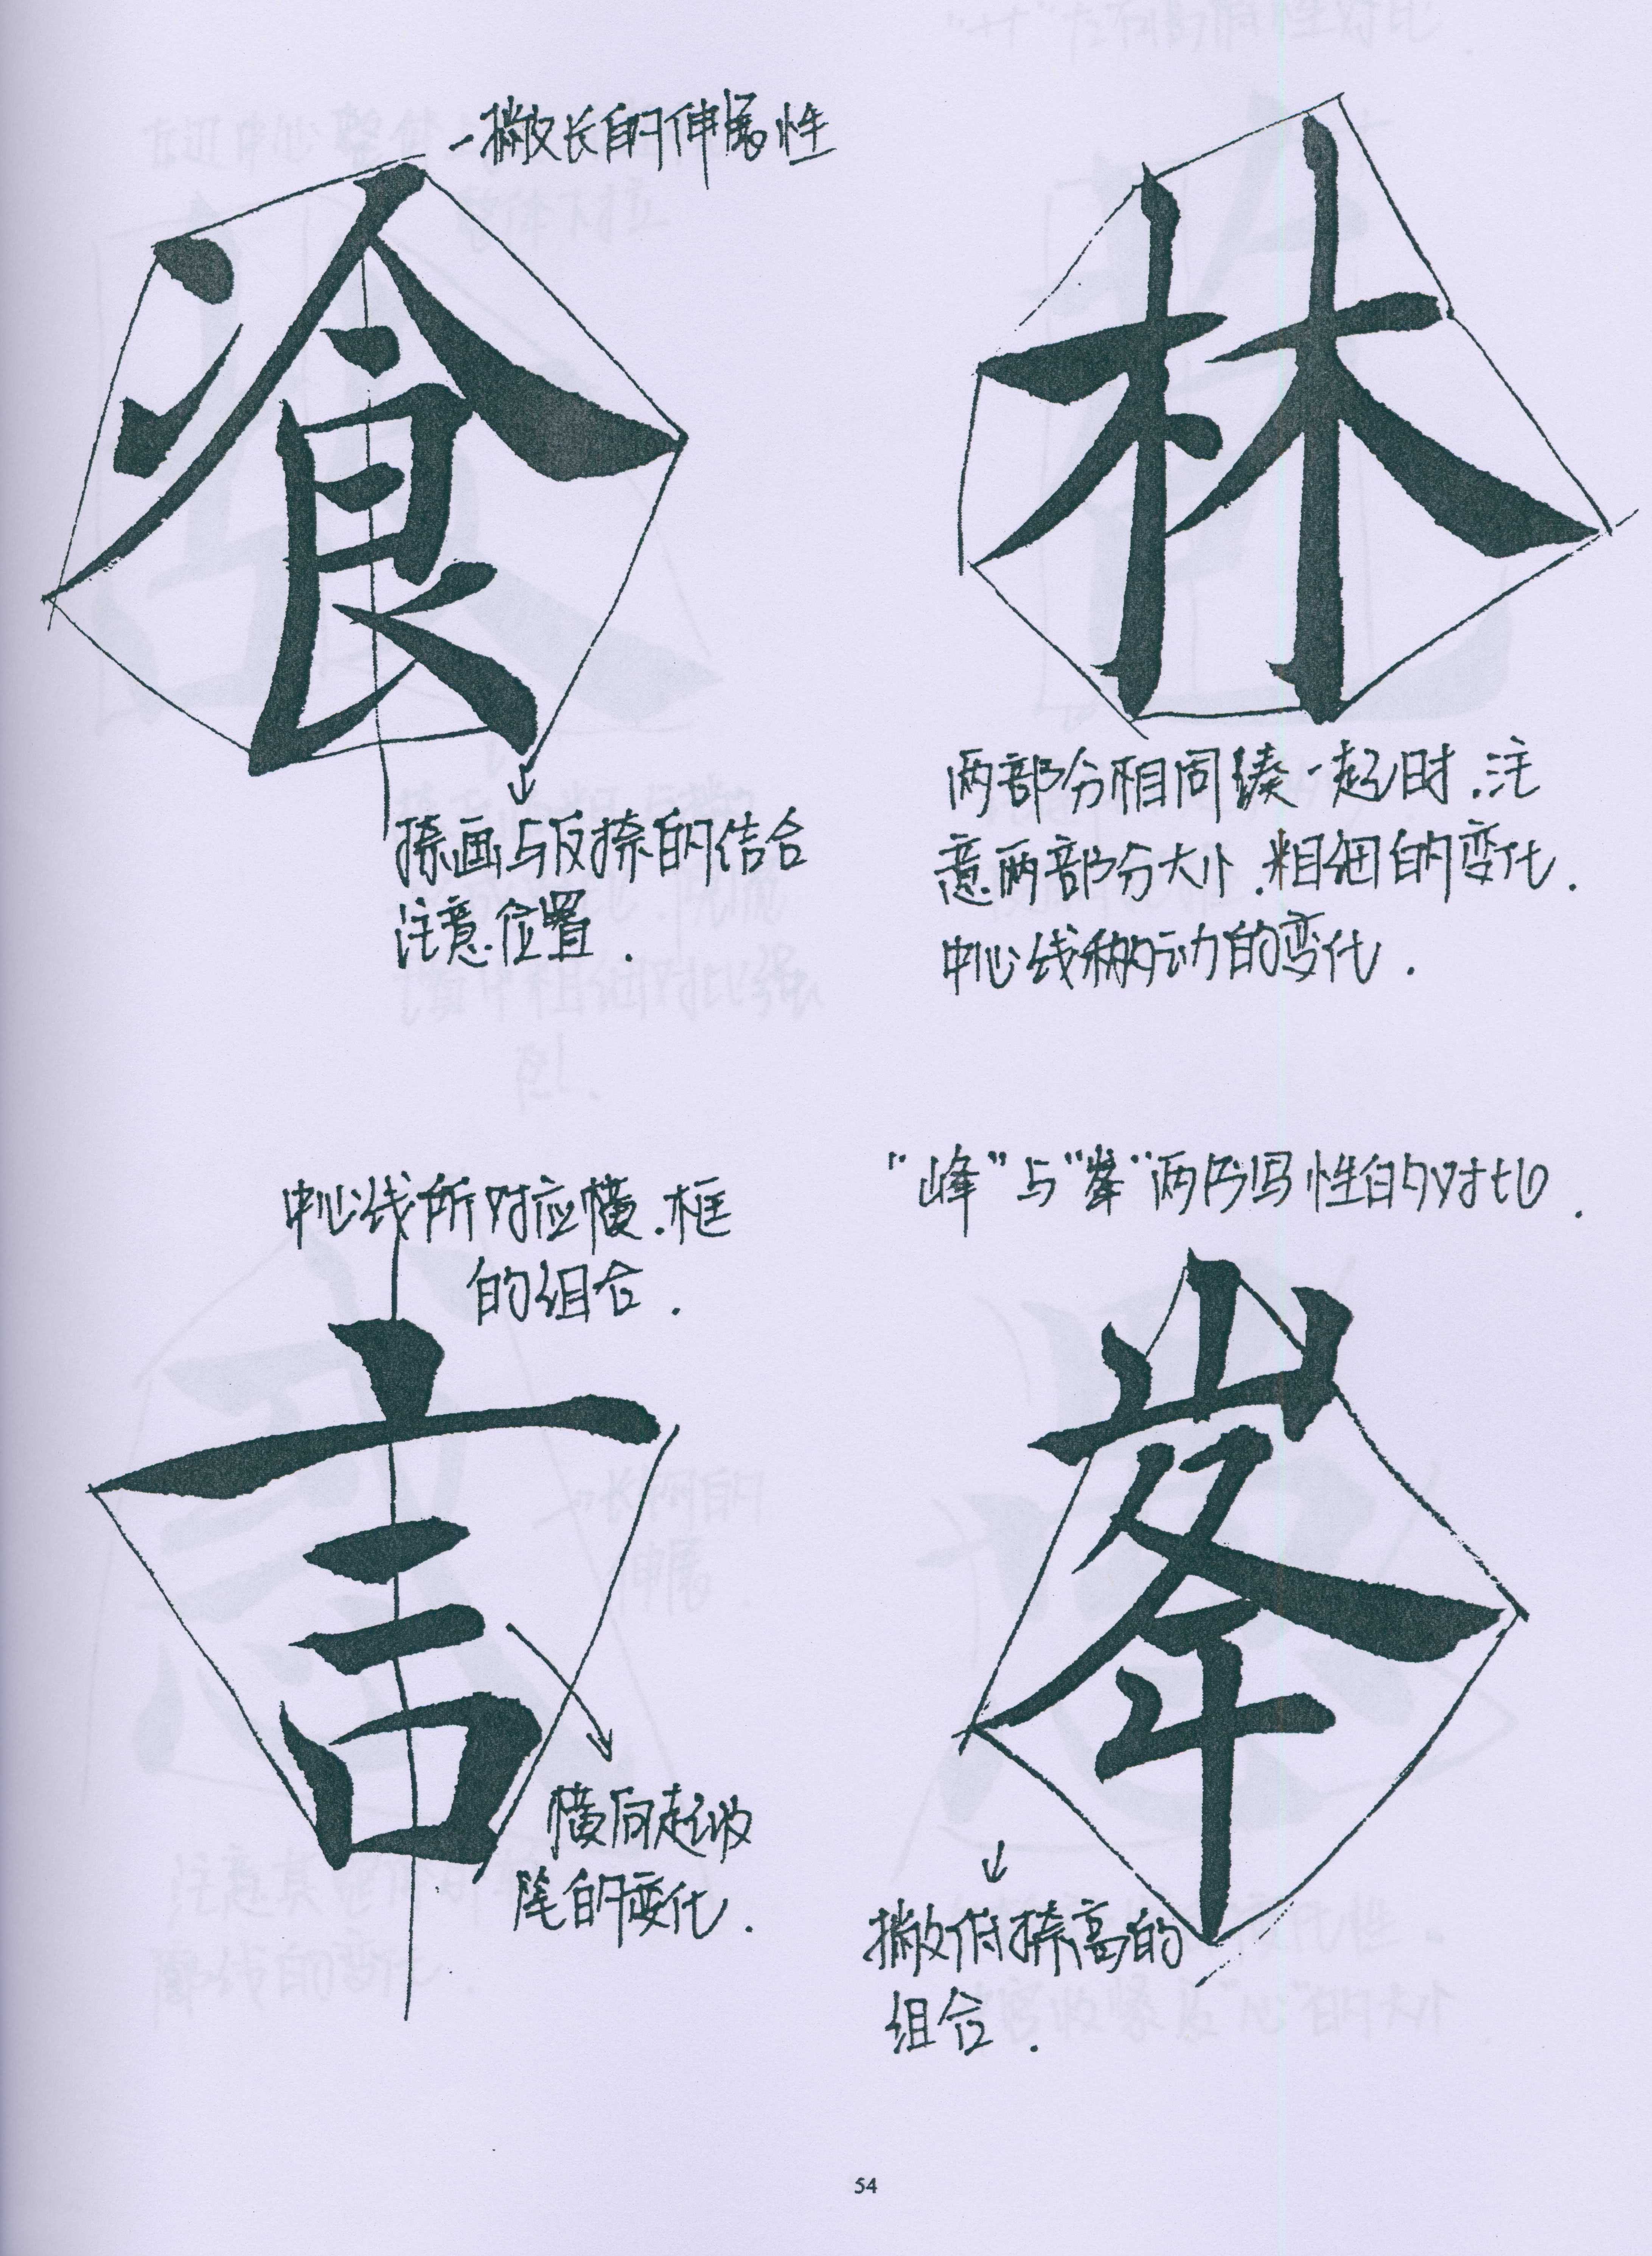 撇长的伸展性
飡
捺画与反捺的结合
注意位置.
林
两部分相同凑一起时.注
意两部分大小.粗细的变化.
中心线移动的变化.
中心线所对应横.框
的组合.
言
横向起收
尾的变化.
“峰”与“峯”两写性的对比.
峯
撇低捺高的
组合.
54